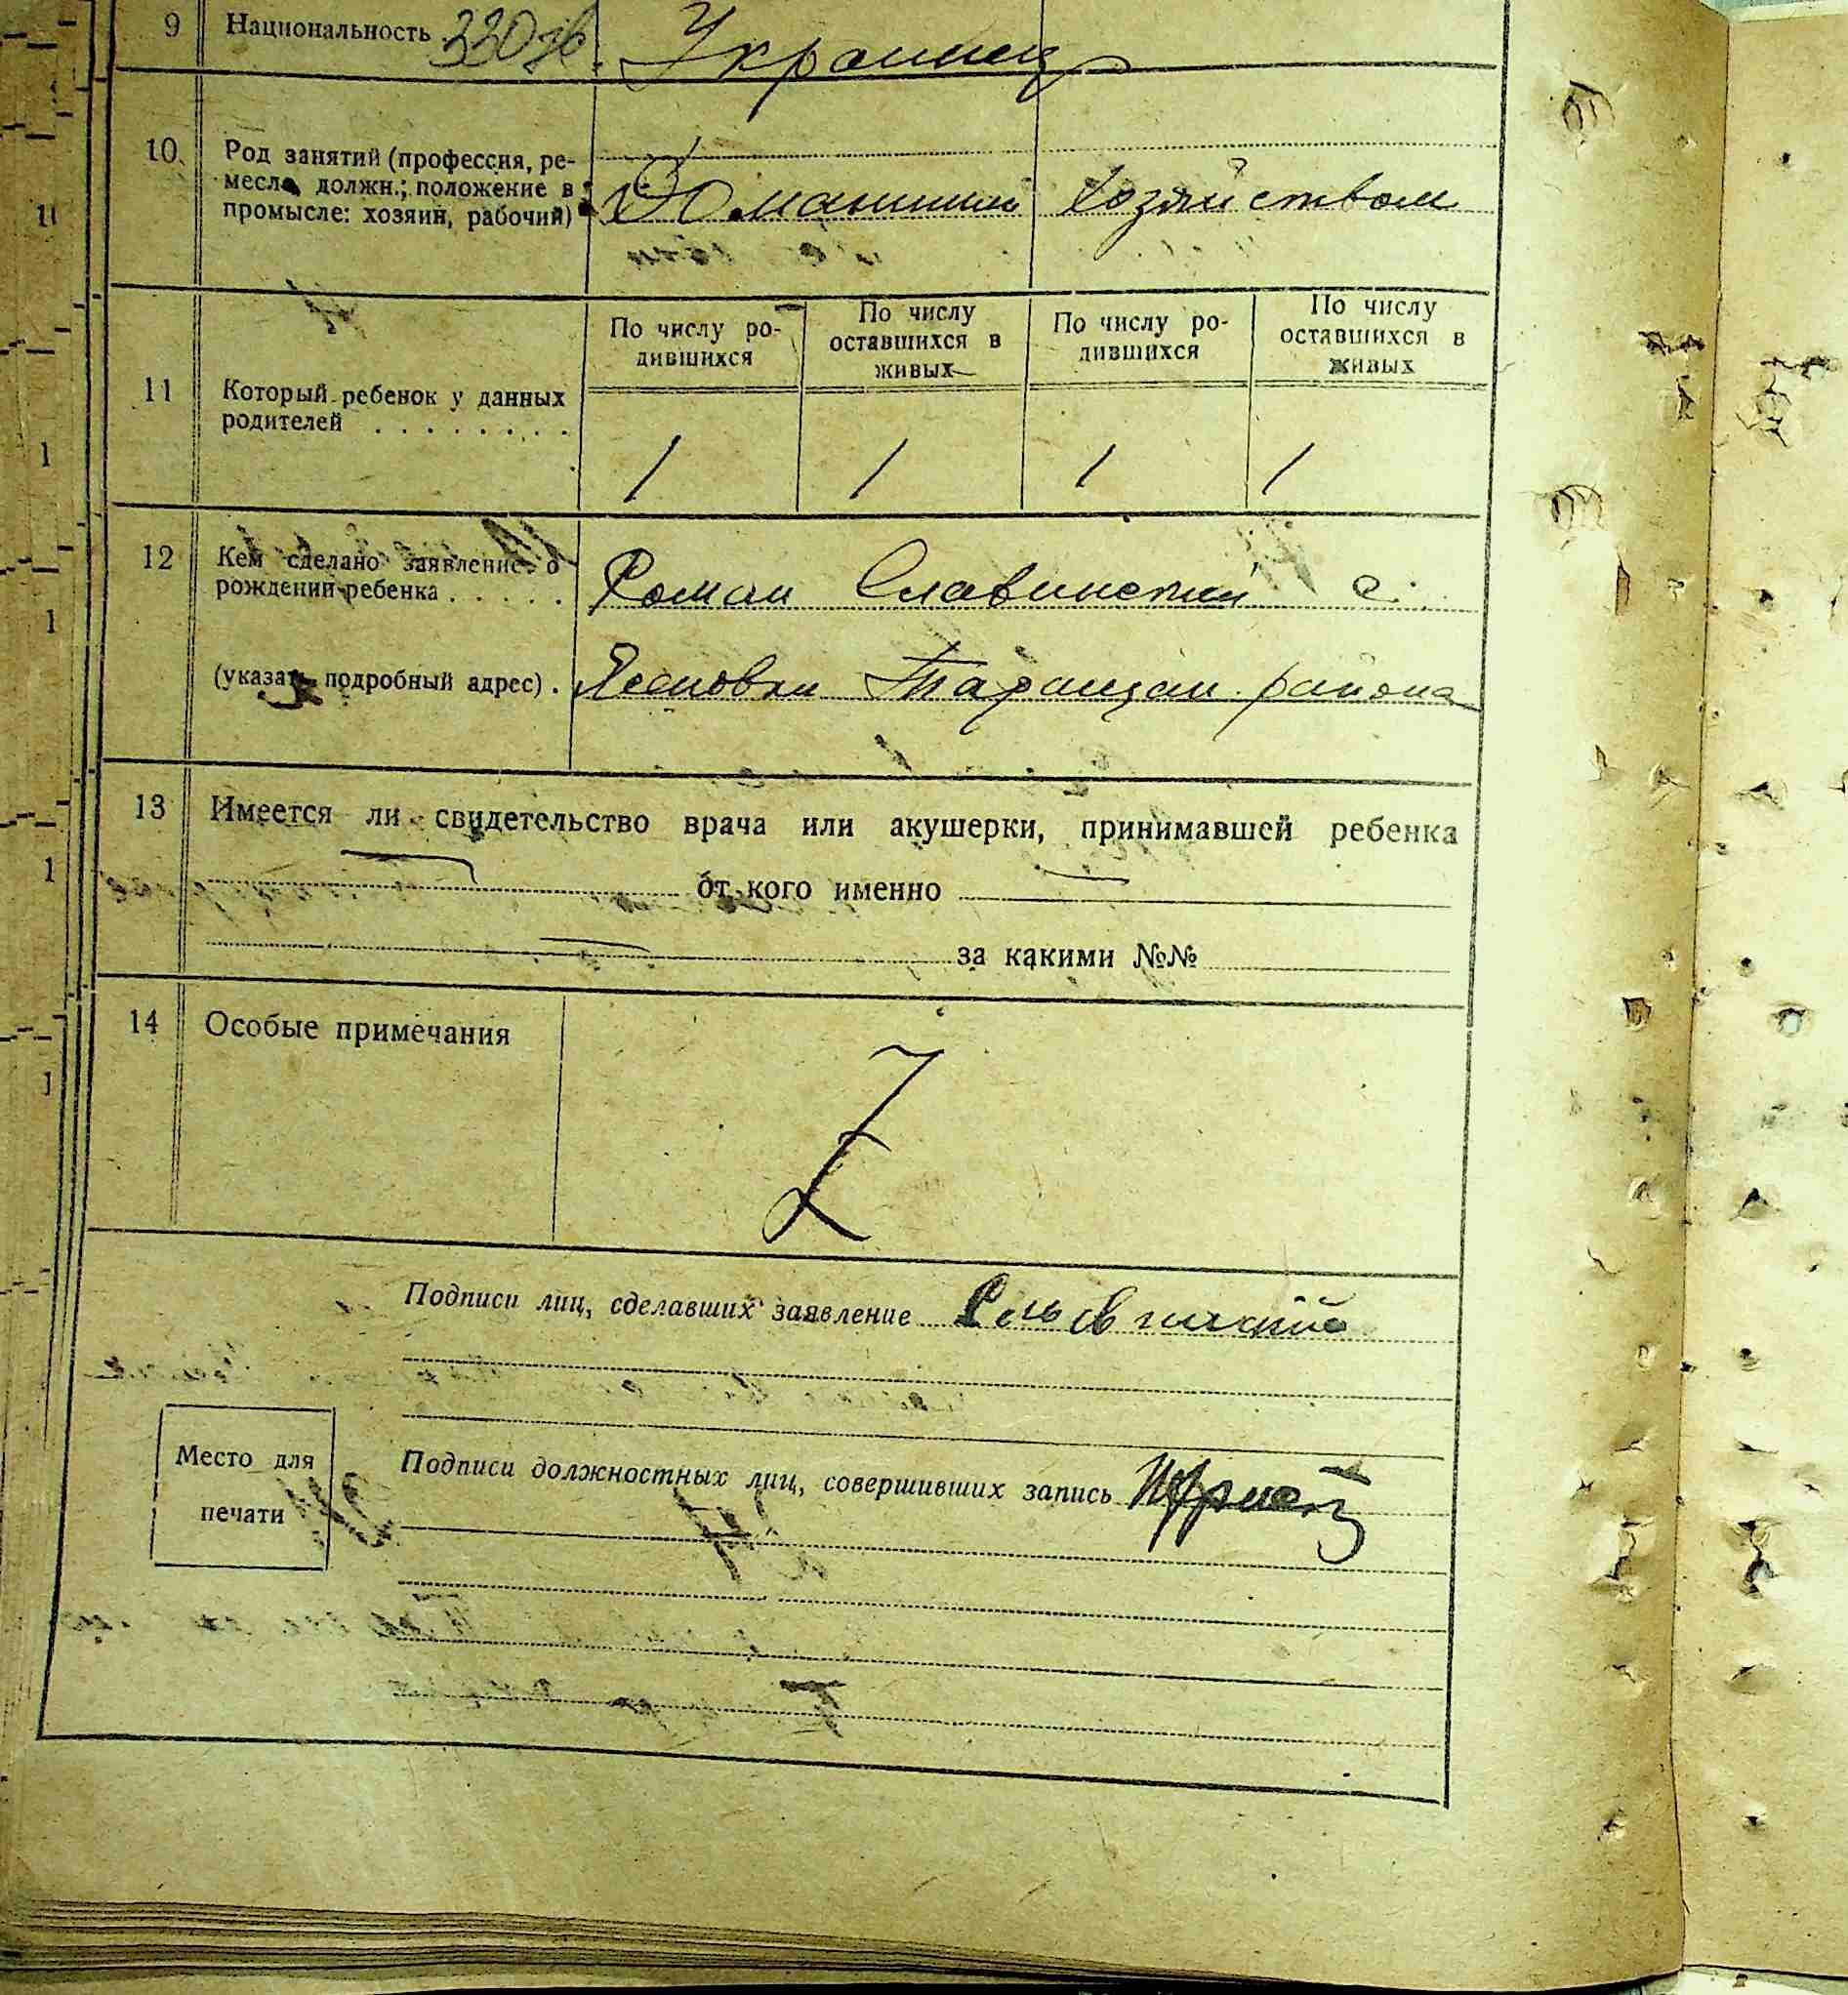 9 Национальность Украинец
10 Род занятий (профессия, ре-
месло, должн.; положение в
промысле: хозяин, рабочий)
Домашним хозяйством
По числу ро-
дившихся
По числу
оставшихся в
живых
По числу ро-
дившихся
По числу
оставшихся в
живых
11 Который ребенок у данных
родителей . . . . . . . .
1 1 1 1
12 Кем сделано заявление о
рождении ребенка . . . . .
Роман Славинский с.
(указать подробный адрес) .
Лесовки Таращан. района
13 Имеется ли свидетельство врача или акушерки, принимавшей ребенка
от кого именно
за какими №№
14 Особые примечания
Z
Подписи лиц, сделавших заявление
Место для
печати
Подписи должностных лиц, совершивших запись